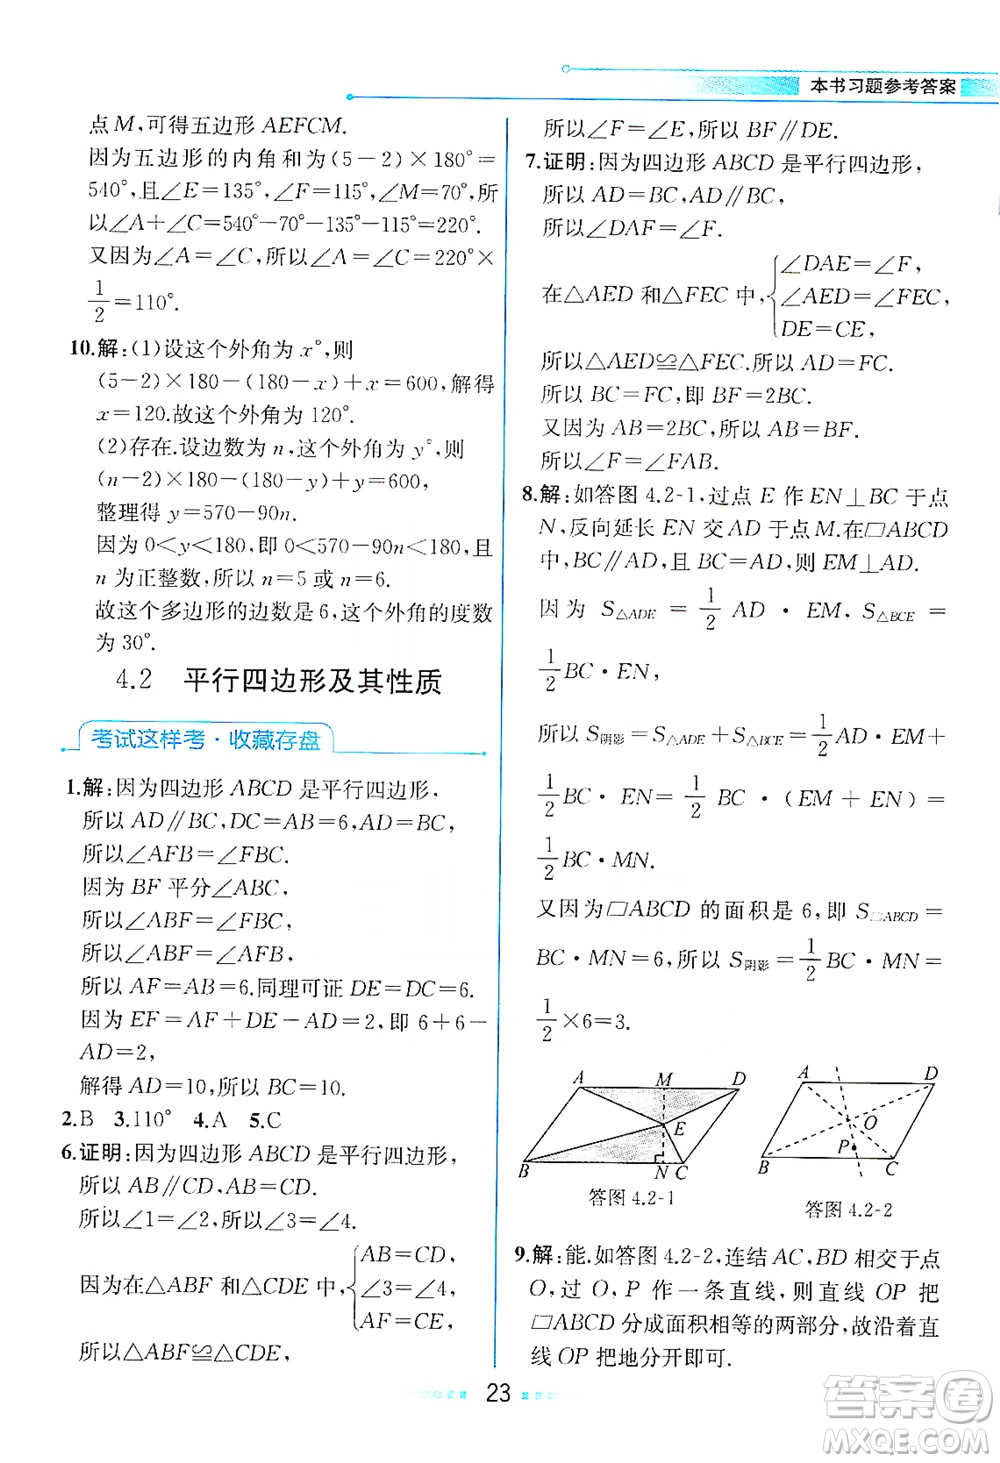 本书习题参考答案
点M,可得五边形AEFCM.
因为五边形的内角和为(5-2)×180°=
540°,且∠E=135°,∠F=115°,∠M=70°,所
以∠A+∠C=540°-70°-135°-115°=220°.
又因为∠A=∠C,所以∠A=∠C=220°×
1/2=110°.
10.解:(1)设这个外角为x°,则
(5-2)×180-(180-x)+x=600,解得
x=120.故这个外角为120°.
(2)存在.设边数为n,这个外角为y°,则
(n-2)×180-(180-y)+y=600,
整理得y=570-90n.
因为0<y<180,即0<570-90n<180,且
n为正整数,所以n=5或n=6.
故这个多边形的边数是6,这个外角的度数
为30°.
4.2 平行四边形及其性质
考试这样考·收藏存盘
1.解:因为四边形ABCD是平行四边形,
所以AD∥BC,DC=AB=6,AD=BC,
所以∠AFB=∠FBC.
因为BF平分∠ABC,
所以∠ABF=∠FBC,
所以∠ABF=∠AFB,
所以AF=AB=6.同理可证DE=DC=6.
因为EF=AF+DE-AD=2,即6+6-
AD=2,
解得AD=10,所以BC=10.
2.B 3.110° 4.A 5.C
6.证明:因为四边形ABCD是平行四边形,
所以AB∥CD.
所以∠1=∠2,所以∠3=∠4.
因为在△ABF和△CDE中,{AB=CD,
∠3=∠4,
AF=CE,
所以△ABF≌△CDE,
所以∠F=∠E,所以BF∥DE.
7.证明:因为四边形ABCD是平行四边形,
所以AD=BC,AD∥BC,
所以∠DAF=∠F.
在△AED和△FEC中,{∠DAE=∠F,
∠AED=∠FEC,
DE=CE,
所以△AED≌△FEC.所以AD=FC.
所以BC=FC,即BF=2BC.
又因为AB=2BC,所以AB=BF.
所以∠F=∠FAB.
8.解:如答图4.2-1,过点E作EN⊥BC于点
N,反向延长EN交AD于点M.在□ABCD
中,BC∥AD,且BC=AD,则EM⊥AD.
因为S△ADE=1/2AD·EM,S△BCE=
1/2BC·EN,
所以S阴影=S△ADE+S△BCE=1/2AD·EM+
1/2BC·EN=1/2BC·(EM+EN)=
1/2BC·MN.
又因为□ABCD的面积是6,即S□ABCD=
BC·MN=6,所以S阴影=1/2BC·MN=
1/2×6=3.
A M D
E
B N C
答图4.2-1
A D
O
P
B C
答图4.2-2
9.解:能.如答图4.2-2,连结AC,BD相交于点
O,过O,P作一条直线,则直线OP把
□ABCD分成面积相等的两部分,故沿着直
线OP把地分开即可.
23
答案卷
MXQE.COM